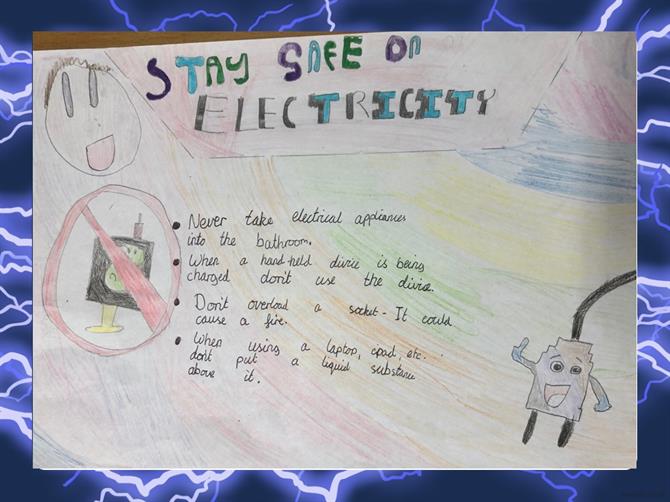 STAY SAFE ON
ELECTRICITY
• Never take electrical appliances
into the bathroom.
• When a hand-held divice is being
charged don't use the divice.
• Don't overload a socket - It could
cause a fire.
• When using a laptop, ipad, etc.
don't put a liquid substance
above it.